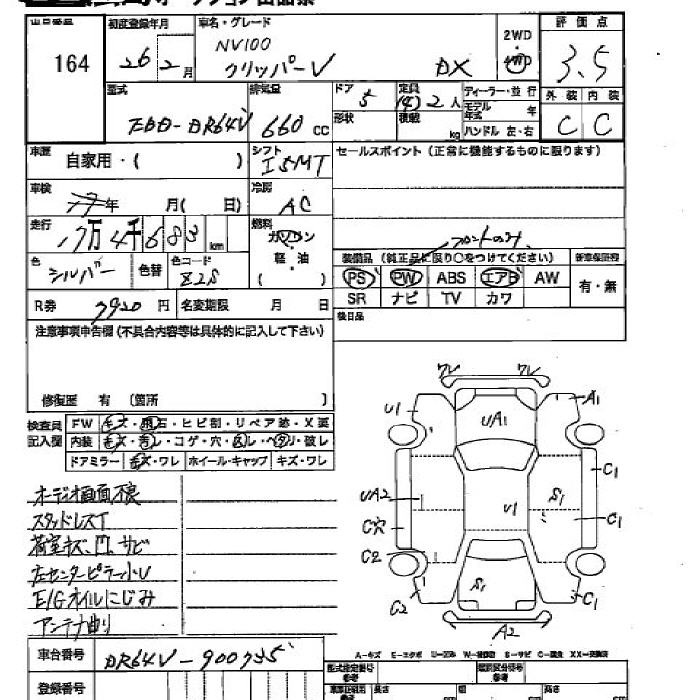 出品番号 初度登録年月 車名・グレード 2WD 評価点
164 26年2月 NV100 クリッパーV DX 4WD 3.5
型式 排気量 ドア 定員 ディーラー・並行 外装 内装
EBD-DR64V 660cc 5 (4)2人 モデル年式 年 C C
形状 積載 kg ハンドル 左・右
車歴 自家用・( ) シフト I5MT セールスポイント(正常に機能するものに限ります)
車検 年 月( 日) 冷房 AC
走行 17万4千683km 燃料 ガソリン
フロントのみ
色 シルバー 色替 色コード Z2S 軽・油 ( )
装備品(純正品に限り○をつけてください) 新車保証書
PS PW ABS エアB AW 有・無
SR ナビ TV カワ
R券 7920円 名変期限 月 日 後日品
注意事項申告欄(不具合内容等は具体的に記入して下さい)
修復歴 有(箇所 )
検査員記入欄 FW キズ・飛石・ヒビ割・リペア跡・X要
内装 キズ・汚レ・コゲ・穴・スレ・ヘタリ・破レ
ドアミラー キズ・ワレ ホイール・キャップ キズ・ワレ
ワレ ワレ
U1 UA1 A1
C1
UA2 U1 S1
C穴 C1
C2
S1
C2 C1
A2
オーディオ画面不良
スタッドレスT
荷室キズ、凹、サビ
左センターピラー小U
E/Gオイルにじみ
アンテナ曲り
A-キズ E-エクボ U-凹み W-補修跡 S-サビ C-腐食 XX-交換済
車台番号 DR64V-900735
登録番号
型式指定番号 類別区分番号
長さ 幅 高さ